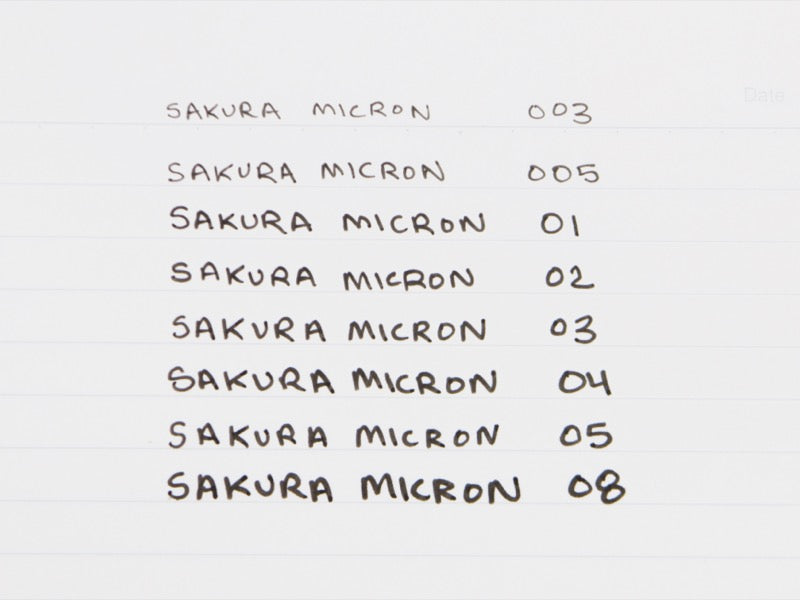 Date
SAKURA MICRON 003
SAKURA MICRON 005
SAKURA MICRON 01
SAKURA MICRON 02
SAKURA MICRON 03
SAKURA MICRON 04
SAKURA MICRON 05
SAKURA MICRON 08